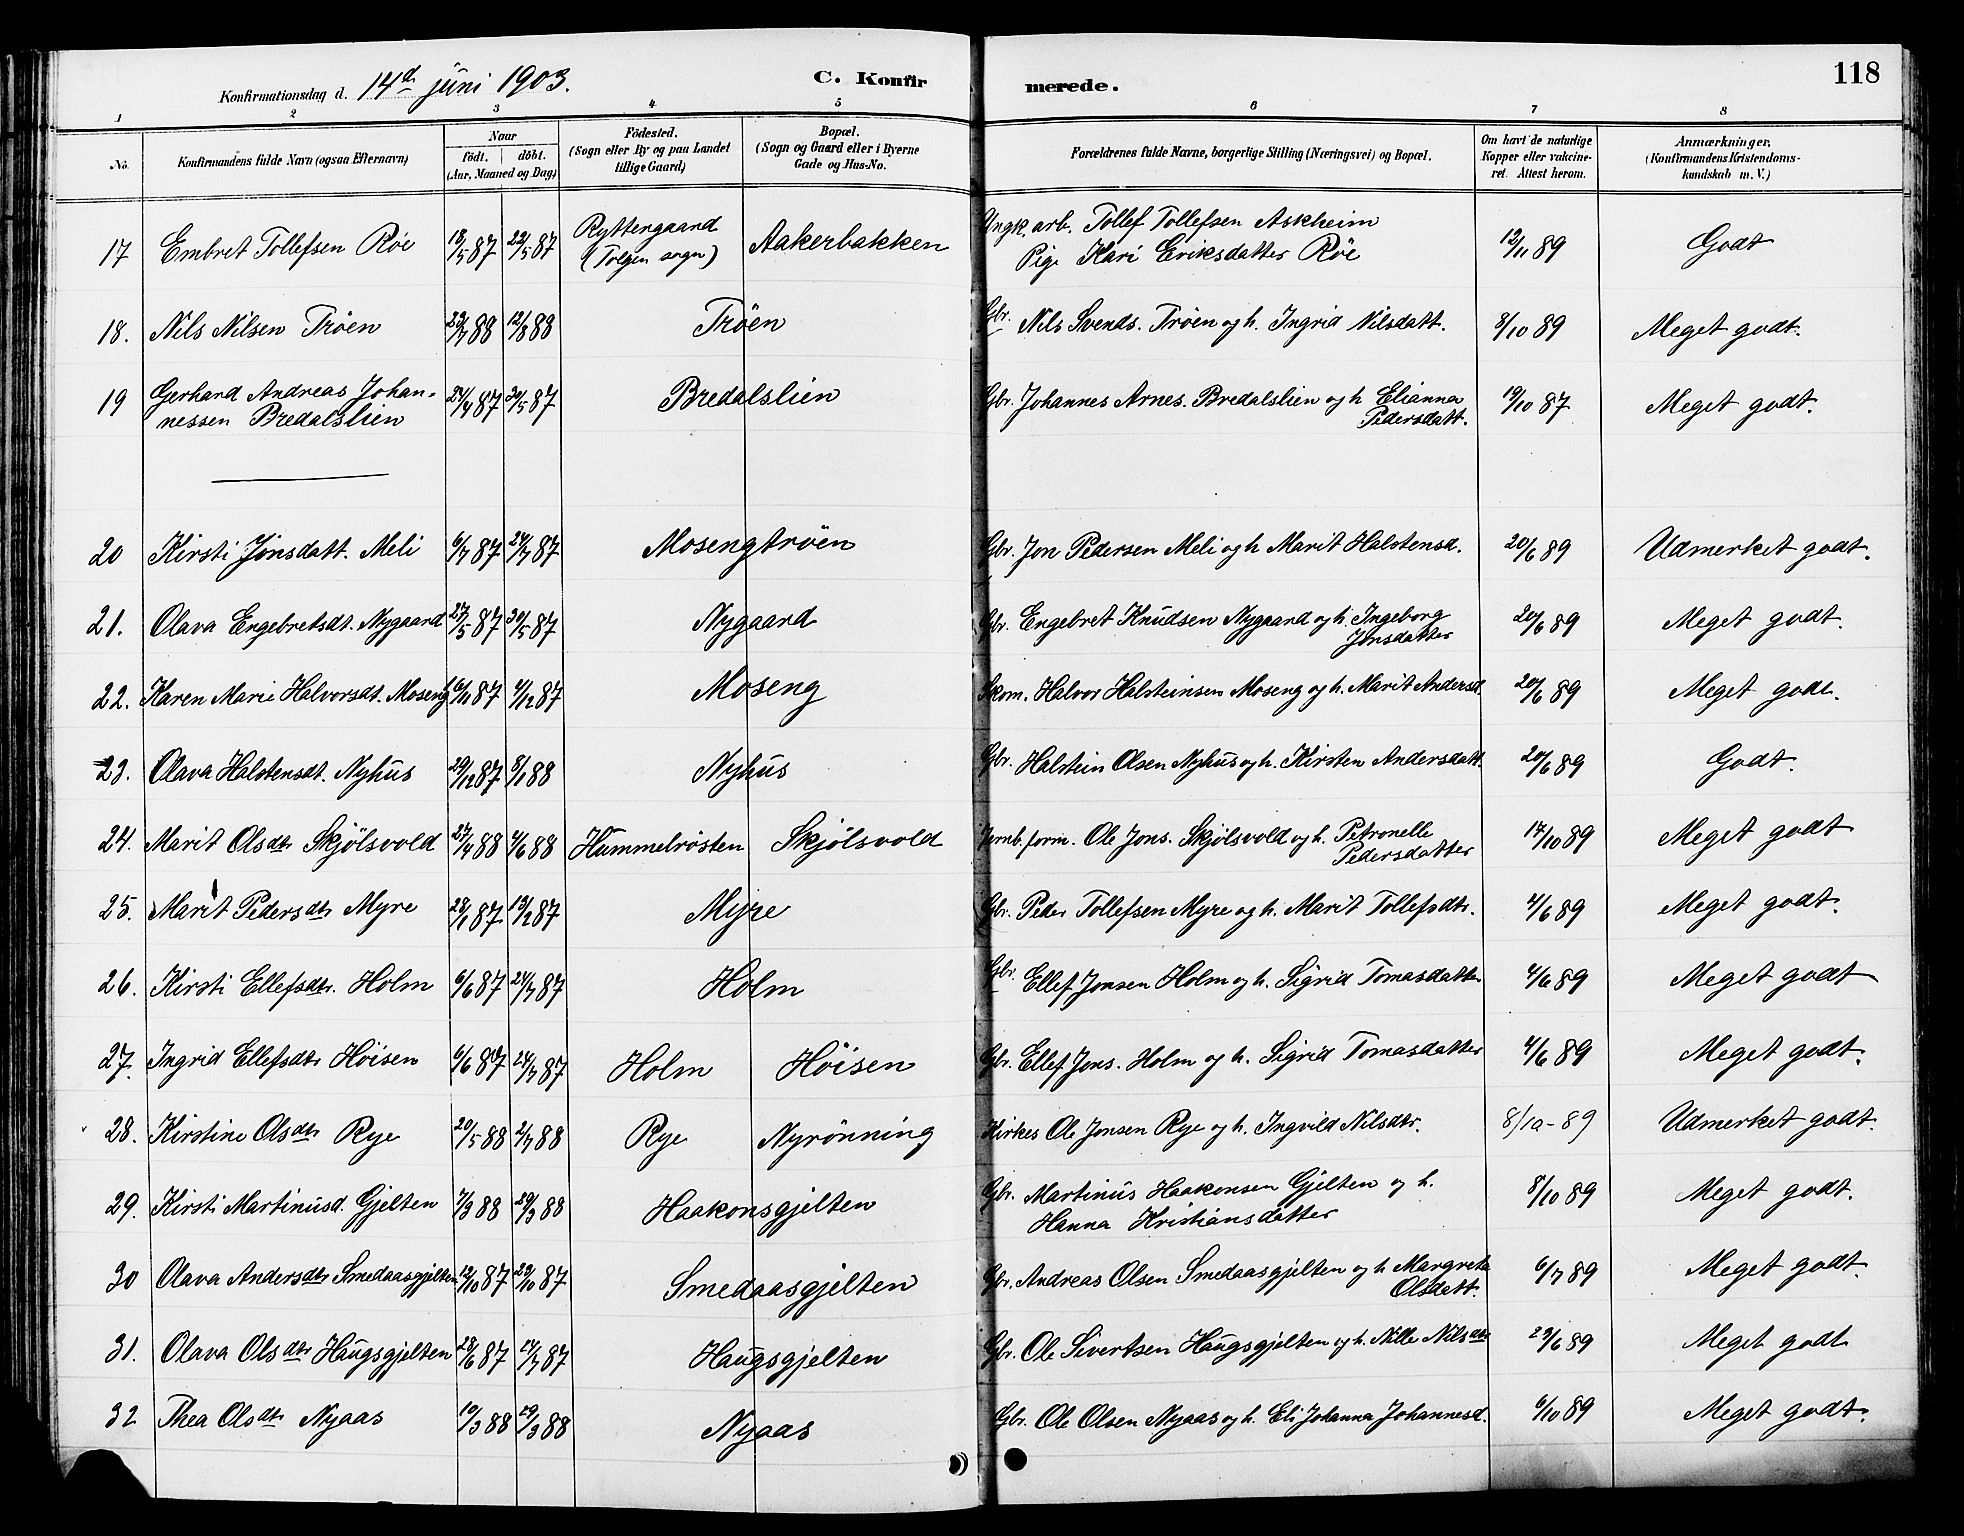 118
Konfirmationsdag d. 14d juni 1903. C. Konfirmerede.
1 2 3 4 5 6 7 8
No. Konfirmandens fulde Navn (ogsaa Efternavn) Naar født. døbt. (Aar, Maaned og Dag) Fødested. (Sogn eller By og paa Landet tillige Gaard) Bopæl. (Sogn og Gaard eller i Byerne Gade og Hus-No. Forældrenes fulde Navne, borgerlige Stilling (Næringsvei) og Bopæl. Om havt de naturlige Kopper eller vakcineret. Attest herom. Anmærkninger. (Konfirmandens Kristendomskundskab m. V.)
17 Embret Tollefsen Røe 18/5 87 22/5 87 Ryttergaard (Tolgen sogn) Aakerbakken Ungk. arb. Tollef Tollefsen Askheim Pige Kari Eriksdatter Røe 12/11 89 Godt
18. Nils Nilsen Trøen 23/7 88 12/8 88 Trøen Gbr. Nils Svends. Trøen og h. Ingrid Nilsdatt. 8/10 89 Meget godt.
19 Gerhard Andreas Johan-
nessen Bredalslien 24/4 87 30/5 87 Bredalslien Gbr. Johannes Arnes. Bredalslien og h Elianna Pedersdatt. 19/10 87 Meget godt.
20 Kirsti Jonsdatt. Meli 6/7 87 24/7 87 Mosengtrøen Gbr. Jon Pedersen Meli og h Marit Halstensd. 20/6 89 Udmerket godt.
21. Olava Engebretsdt. Nygaard 27/5 87 30/5 87 Nygaard Gbr. Engebret Knudsen Nygaard og h. Ingeborg Jonsdatter 20/6 89 Meget godt.
22. Karen Marie Halvorsdt. Moseng 6/11 87 4/12 87 Moseng Skom. Halvor Halsteinsen Moseng og h. Marit Andersd. 20/6 89 Meget godt.
23. Olava Halstensdt. Nyhus 29/12 87 8/1 88 Nyhus Gbr. Halstein Olsen Nyhus og h. Kirsten Andersdatt. 20/6 89 Godt.
24. Marit Olsdtr Skjølsvold 27/4 88 4/6 88 Hummelrøsten Skjølsvold Jernb. form. Ole Jons. Skjølsvold og h. Petronelle Pedersdatter 17/10 89 Meget godt
25. Marit Pedersdtr Myre 28/1 87 13/2 87 Myre Gbr. Peder Tollefsen Myre og h. Marit Tollefsdtr. 4/6 89 Meget godt.
26. Kirsti Ellefsdtr. Holm 6/6 87 24/7 87 Holm Gbr. Ellef Jonsen Holm og h. Sigrid Tomasdatter 4/6 89 Meget godt
27. Ingrid Ellefsdtr Høisen 6/6 87 24/7 87 Holm Høisen Gbr. Ellef Jons. Holm og h. Sigrid Tomasdatter 4/6 89 Meget godt.
28. Kirstine Olsdtr Rye 20/5 88 2/7 88 Rye Nyrønning Kirkes Ole Jonsen Rye og h. Ingvild Nilsdtr. 8/10-89 Udmerket godt.
29. Kirsti Martinusd. Gjelten 7/3 88 29/3 88 Haakonsgjelten Gbr. Martinus Haakonsen Gjelten og h. Hanna Kristiansdatter 8/10 89 Meget godt.
30 Olava Andersdtr Smedaasgjelten 12/10 87 23/10 87 Smedaasgjelten Gbr. Andreas Olsen Smedaasgjelten og h Margrete Olsdatt. 6/7 89 Meget godt.
31. Olava Olsdtr Haugsgjelten 28/6 87 24/7 87 Haugsgjelten Gbr. Ole Sivertsen Haugsgjelten og h. Nille Nilsdtr 23/6 89 Meget godt
32 Thea Olsdtr Nyaas 10/3 88 29/3 88 Nyaas Gbr. Ole Olsen Nyaas og h. Eli Johanna Johannesd. 6/10 89 Meget godt.